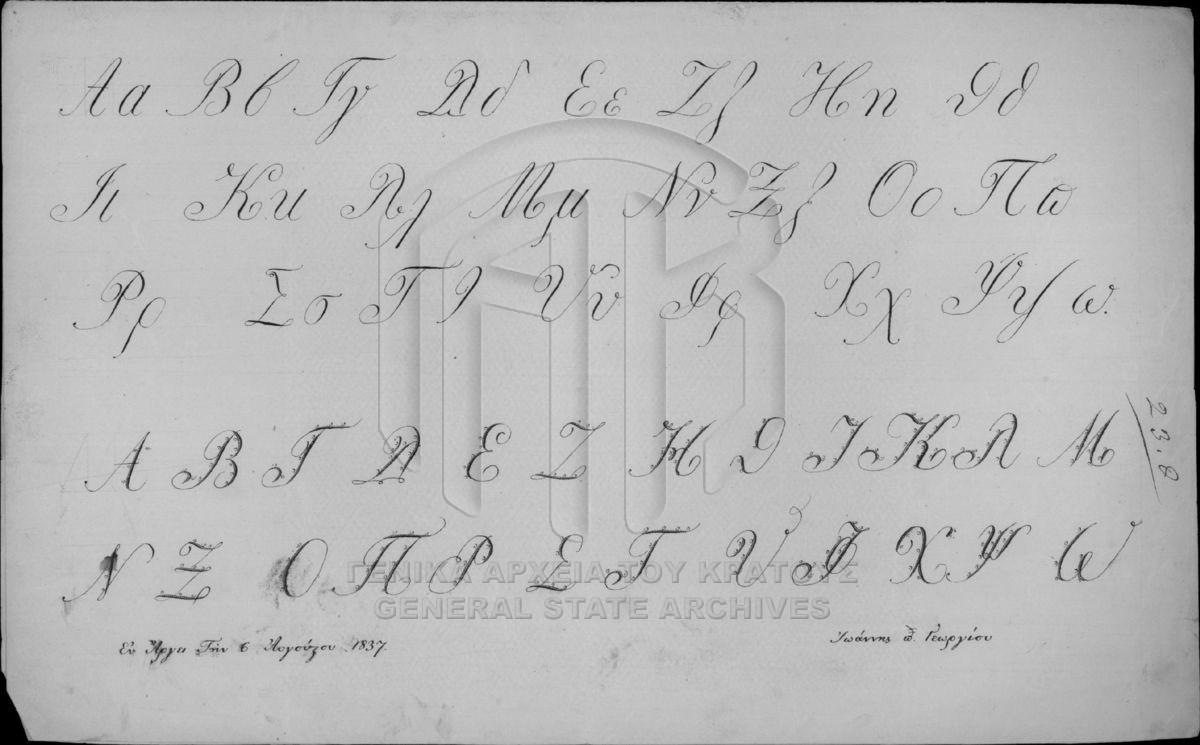 Αα Ββ Γγ Δδ Εε Ζζ Ηη Θθ
Ιι Κκ Λλ Μμ Νν Ξξ Οο Πϖ
Ρρ Σσ Ττ Υυ Φφ Χχ Ψψ ω.
Α Β Γ Δ Ε Ζ Η Θ Ι Κ Λ Μ
Ν Ξ Ο Π Ρ Σ Τ Υ Φ Χ Ψ Ω
23.8
ΓΕΝΙΚΑ ΑΡΧΕΙΑ ΤΟΥ ΚΡΑΤΟΥΣ
GENERAL STATE ARCHIVES
Ἐν Ἄργει Τὴν 6 Αὐγούστου 1837.
Ἰωάννης π. Γεωργίου